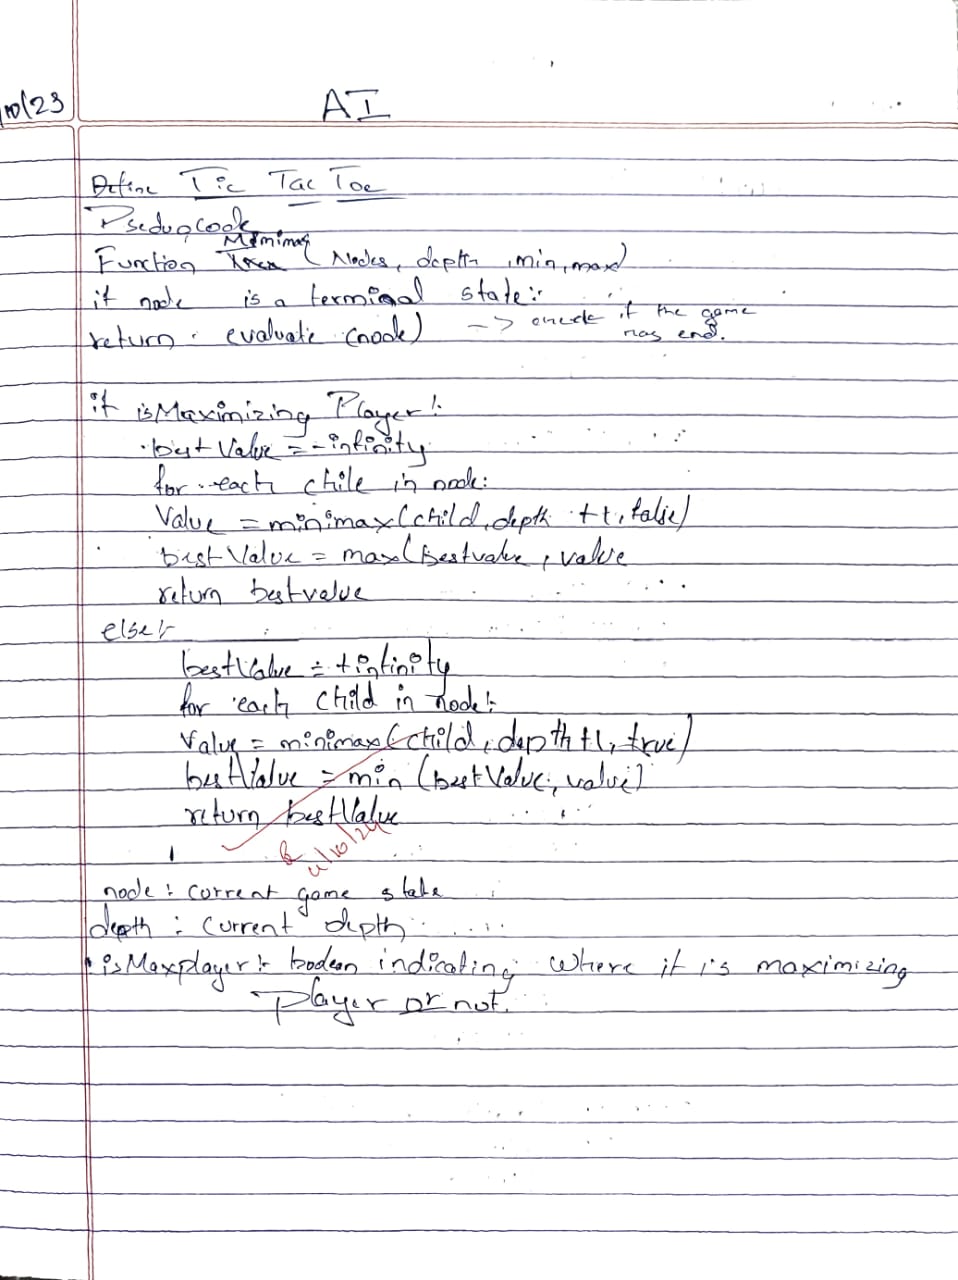 10/23
AI
Define Tic Tac Toe
Psedupcode
Minimax
Function (Nodes, depth, min, max)
if node is a terminal state:-
return : evaluate (node) -> check if the game
has end.
if isMaximizing Player:-
best Value = -infinity
for each chile in node:
Value = minimax(child, depth ++, false)
best Value = max(Bestvalue, value
return bestvalue
else:-
bestValue = +infinity
for each child in node:-
Value = minimax(child, depth +1, true)
bestValue = min (bestValue, value)
return bestValue
/10/24
node : current game state
depth : current depth
isMaxplayer :- boolean indicating where it is maximizing
player or not.